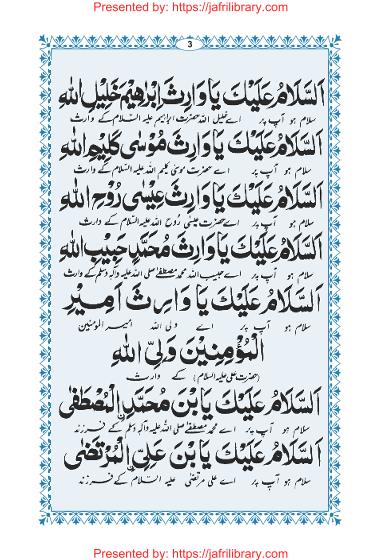 Presented by: https://jafrilibrary.com/
3
اَلسَّلَامُ عَلَيْكَ يَا وَارِثَ اِبْرَاهِيْمَ خَلِيْلِ اللهِ
سلام ہو آپ پر اے خلیل اللہ حضرت ابراہیم علیہ السلام کے وارث
اَلسَّلَامُ عَلَيْكَ يَا وَارِثَ مُوْسٰى كَلِيْمِ اللهِ
سلام ہو آپ پر اے حضرت موسیٰ کلیم اللہ علیہ السلام کے وارث
اَلسَّلَامُ عَلَيْكَ يَا وَارِثَ عِيْسٰى رُوْحِ اللهِ
سلام ہو آپ پر اے حضرت عیسیٰ روح اللہ علیہ السلام کے وارث
اَلسَّلَامُ عَلَيْكَ يَا وَارِثَ مُحَمَّدٍ حَبِيْبِ اللهِ
سلام ہو آپ پر اے حبیب اللہ محمد مصطفےٰ صلی اللہ علیہ وآلہ وسلم کے وارث
اَلسَّلَامُ عَلَيْكَ يَا وَارِثَ اَمِيْرِ
سلام ہو آپ پر اے ولی اللہ امیر المؤمنین
الْمُؤْمِنِيْنَ وَلِيِّ اللهِ
(حضرت علی علیہ السلام) کے وارث
اَلسَّلَامُ عَلَيْكَ يَابْنَ مُحَمَّدِ الْمُصْطَفٰى
سلام ہو آپ پر اے محمد مصطفےٰ صلی اللہ علیہ وآلہ وسلم کے فرزند
اَلسَّلَامُ عَلَيْكَ يَابْنَ عَلِيِّ الْمُرْتَضٰى
سلام ہو آپ پر اے علی مرتضیٰ علیہ السلام کے فرزند
Presented by: https://jafrilibrary.com/